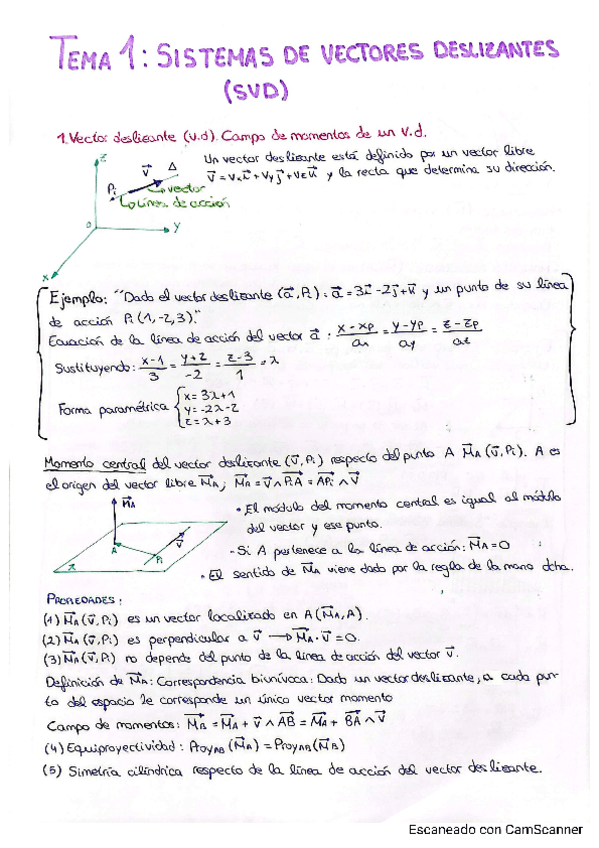 TEMA 1: SISTEMAS DE VECTORES DESLIZANTES
(SVD)
1. Vector deslizante (v.d). Campo de momentos de un v.d.
Un vector deslizante está definido por un vector libre
v⃗ = vₓi⃗ + vᵧj⃗ + v_z u⃗ y la recta que determina su dirección.
z
v⃗ Δ
Pi
vector
Línea de acción
0
y
x
Ejemplo: "Dado el vector deslizante (a⃗, Pi): a⃗ = 3i⃗ - 2j⃗ + u⃗ y un punto de su línea
de acción Pi (1, -2, 3)."
Ecuación de la línea de acción del vector a⃗: (x - xp)/ax = (y - yp)/ay = (z - zp)/az
Sustituyendo: (x-1)/3 = (y+2)/-2 = (z-3)/1 = λ
Forma paramétrica { x = 3λ+1
y = -2λ-2
z = λ+3
Momento central del vector deslizante (v⃗, Pi) respecto del punto A M⃗A (v⃗, Pi). A es
el origen del vector libre M⃗A; M⃗A = v⃗ ∧ PiA⃗ = APi⃗ ∧ v⃗
M⃗A
A
Pi
v⃗
• El módulo del momento central es igual al módulo
del vector y ese punto.
- Si A pertenece a la línea de acción: M⃗A = 0
• El sentido de M⃗A viene dado por la regla de la mano dcha.
PROPIEDADES:
(1) M⃗A (v⃗, Pi) es un vector localizado en A (M⃗A, A).
(2) M⃗A (v⃗, Pi) es perpendicular a v⃗ → M⃗A · v⃗ = 0.
(3) M⃗A (v⃗, Pi) no depende del punto de la línea de acción del vector v⃗.
Definición de M⃗A: Correspondencia biunívoca: Dado un vector deslizante, a cada pun-
to del espacio le corresponde un único vector momento
Campo de momentos: M⃗B = M⃗A + v⃗ ∧ AB⃗ = M⃗A + BA⃗ ∧ v⃗
(4) Equiproyectividad: ProyAB (M⃗A) = ProyAB (M⃗B)
(5) Simetría cilíndrica respecto de la línea de acción del vector deslizante.
Escaneado con CamScanner